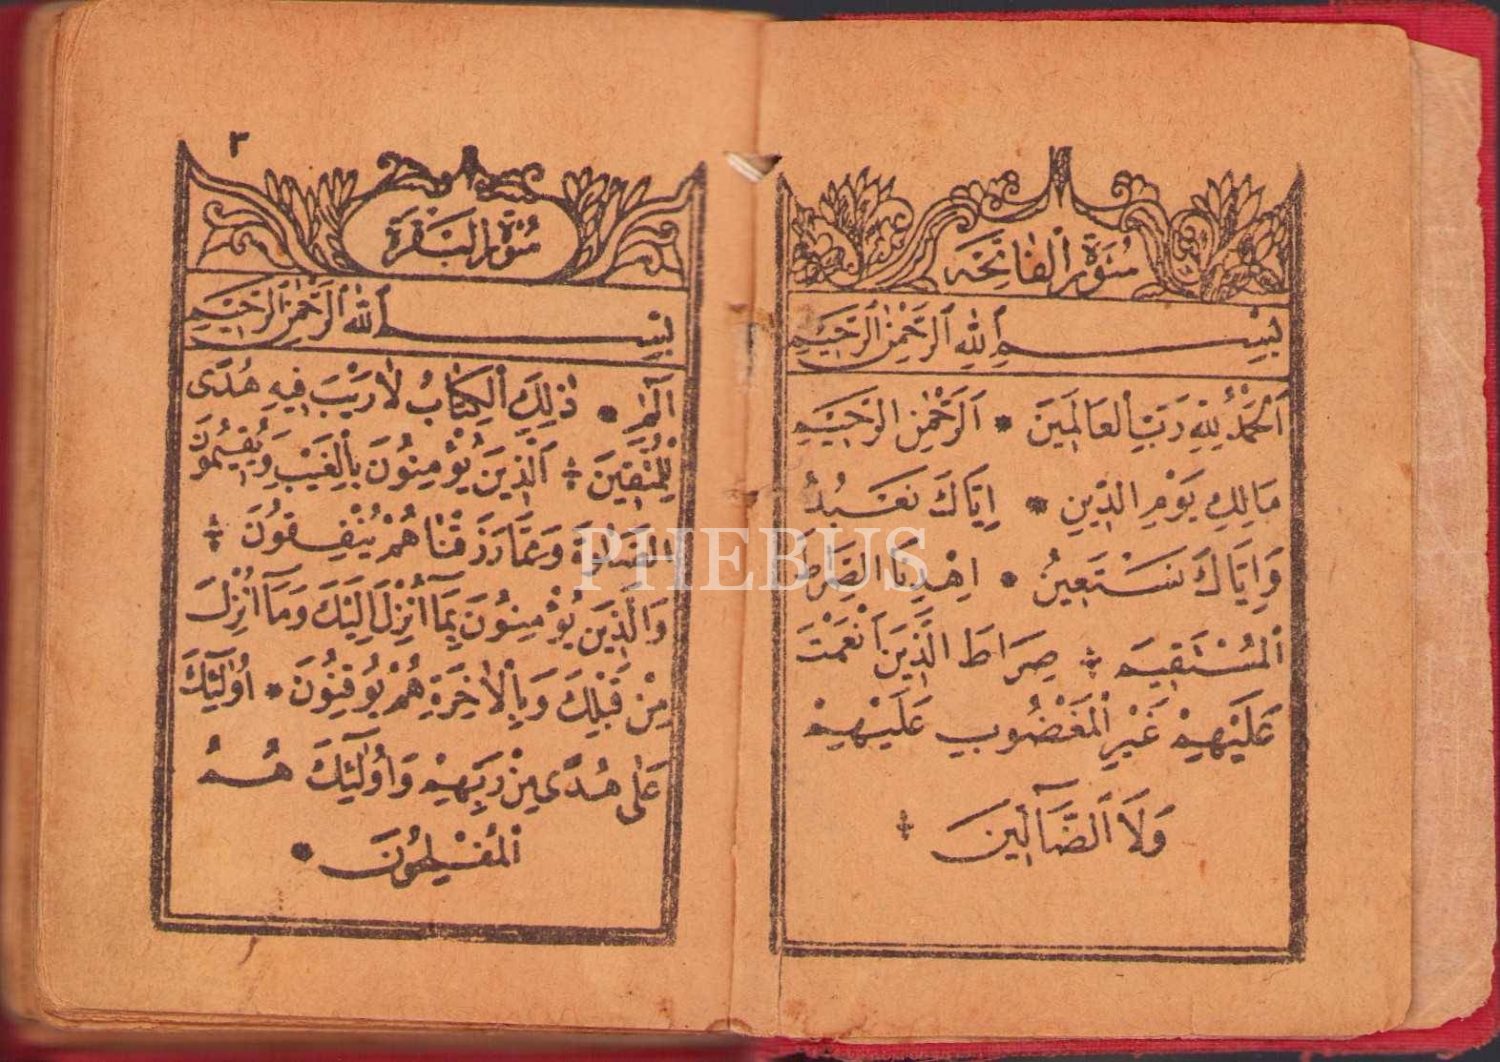 سُورَةُ ٱلْفَاتِحَه
بِسْمِ ٱللهِ ٱلرَّحْمٰنِ ٱلرَّحِيمِ
اَلْحَمْدُ لِلّٰهِ رَبِّ ٱلْعَالَمِينَ * اَلرَّحْمٰنِ الرَّحِيمِ
مَالِكِ يَوْمِ الدِّينِ * اِيَّاكَ نَعْبُدُ
وَاِيَّاكَ نَسْتَعِينُ * اِهْدِنَا الصِّرَاطَ
ٱلْمُسْتَقِيمَ ÷ صِرَاطَ الَّذِينَ اَنْعَمْتَ
عَلَيْهِمْ غَيْرِ ٱلْمَغْضُوبِ عَلَيْهِمْ
وَلَا ٱلضَّآلِّينَ ÷
٣
سُورَةُ ٱلْبَقَرَة
بِسْمِ ٱللهِ ٱلرَّحْمٰنِ ٱلرَّحِيمِ
الٓمٓ * ذٰلِكَ ٱلْكِتَابُ لَا رَيْبَ فِيهِ هُدًى
لِلْمُتَّقِينَ ÷ اَلَّذِينَ يُؤْمِنُونَ بِٱلْغَيْبِ وَيُقِيمُونَ
الصَّلٰوةَ وَمِمَّا رَزَقْنَاهُمْ يُنْفِقُونَ ÷
وَالَّذِينَ يُؤْمِنُونَ بِمَآ اُنْزِلَ اِلَيْكَ وَمَآ اُنْزِلَ
مِنْ قَبْلِكَ وَبِٱلْاٰخِرَةِ هُمْ يُوقِنُونَ * اُولٰٓئِكَ
عَلٰى هُدًى مِنْ رَبِّهِمْ وَاُولٰٓئِكَ هُمُ
ٱلْمُفْلِحُونَ *
PHEBUS